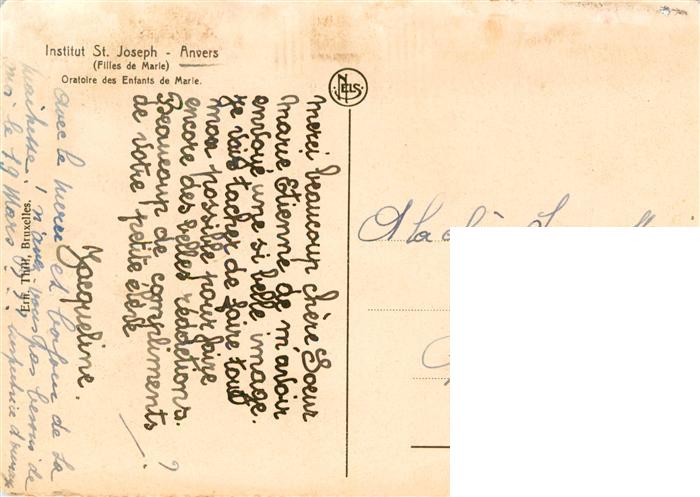 Institut St. Joseph - Anvers
(Filles de Marie)
Oratoire des Enfants de Marie.
NELS
Ern. Thill, Bruxelles.
Merci beaucoup chère Soeur
Marie Etienne de m'avoir
envoyé une si belle image.
Je vais tacher de faire tout
mon possible pour faire
encore des belles rédactions.
Beaucoup de compliments
de votre petite élève
Jacqueline.
Avec le merci et bonjour de la
maîtresse ! n'avez vous pas besoin de
moi le 19 Mars
A la